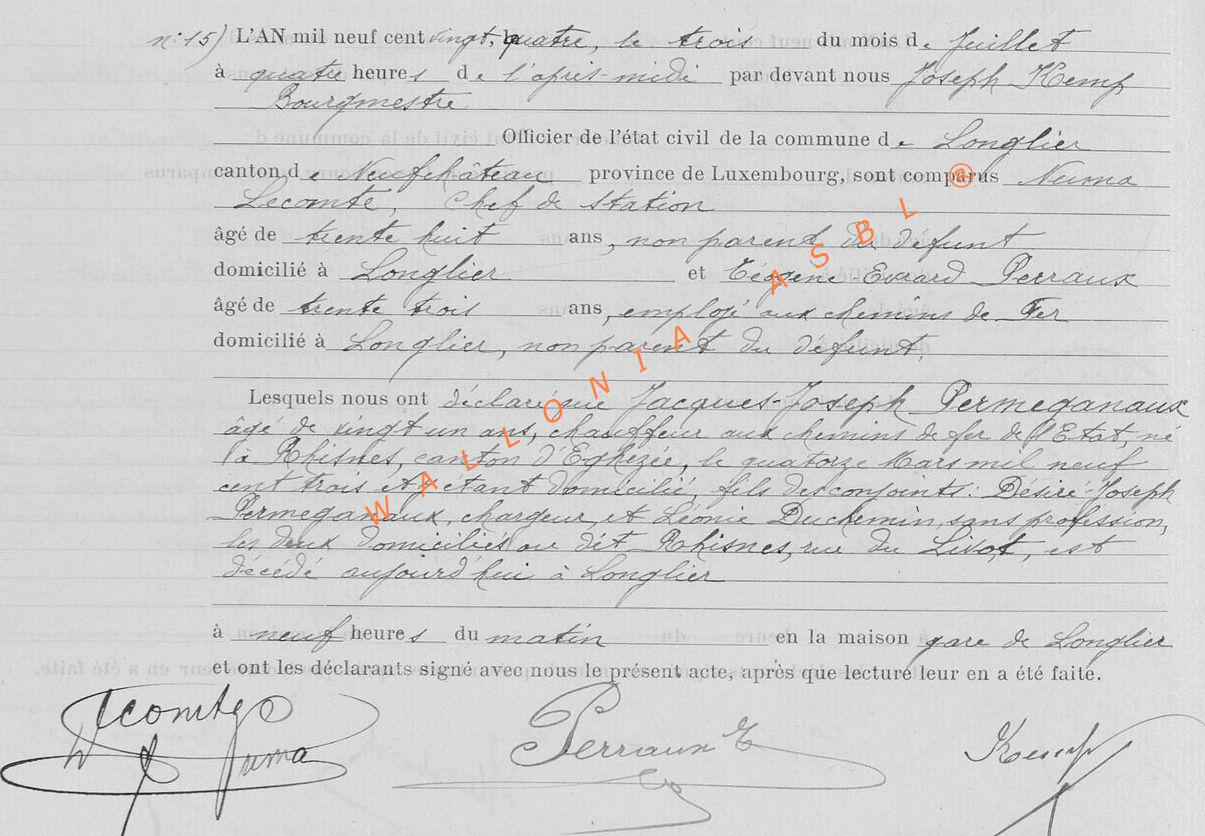 n: 15) L'AN mil neuf cent vingt quatre, le trois du mois de Juillet
à quatre heures de l'après-midi par devant nous Joseph Kemp
Bourgmestre
Officier de l'état civil de la commune de Longlier
canton de Neufchâteau province de Luxembourg, sont comparus Numa
Lecomte, Chef de station
âgé de trente huit ans, non parent du défunt
domicilié à Longlier et Evrard Perraux
âgé de trente trois ans, employé aux chemins de Fer
domicilié à Longlier, non parent du défunt,
Lesquels nous ont déclaré que Jacques-Joseph Permeganaux
âgé de vingt un ans, chauffeur aux chemins de fer de l'Etat, né
à Rhisnes, canton d'Eghezée, le quatorze Mars mil neuf
cent trois et y étant domicilié, fils des conjoints: Désiré-Joseph
Permeganaux, chargeur, et Léonie Duchemin, sans profession,
les deux domiciliés au dét Rhisnes, rue du Lisot, est
décédé aujourd'hui à Longlier
à neuf heures du matin en la maison gare de Longlier
et ont les déclarants signé avec nous le présent acte, après que lecture leur en a été faite.
Lecomte Numa Perraux E Kemp
WALLONIA ASBL ®